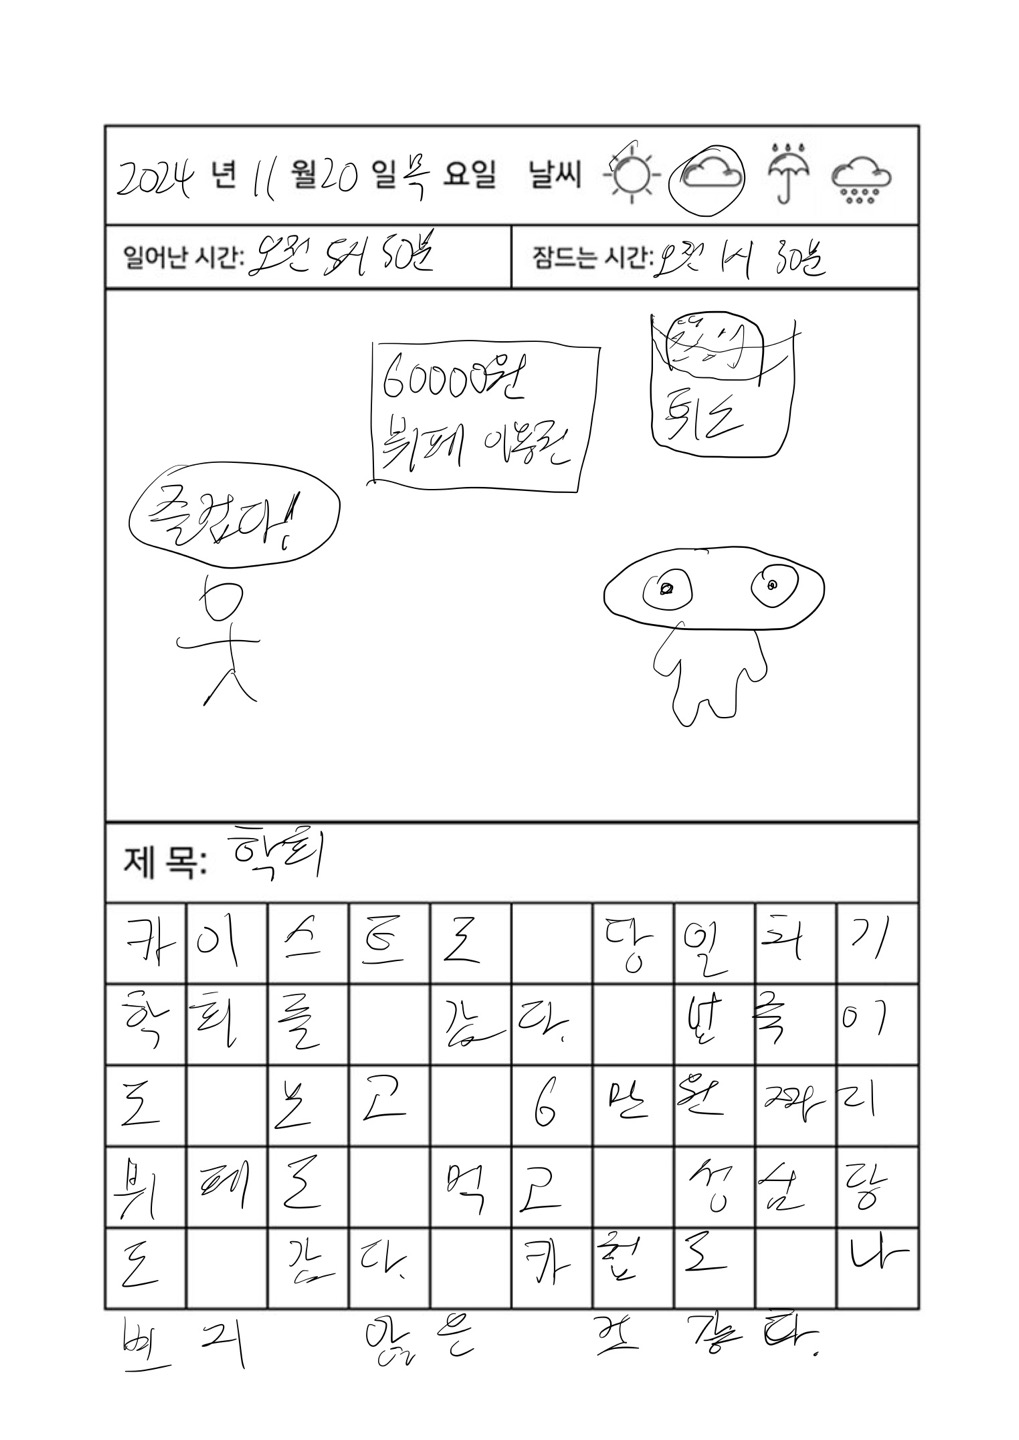 2024 년 11 월 20 일 목 요일 날씨
일어난 시간: 오전 8시 50분
잠드는 시간: 오전 1시 30분
60000원
뷔페 이용권
튀소
즐겁다!
제 목: 학회
카이스트로 당일희기
학회를 갔다. 번죽이
도 보고 6만원짜리
뷔페도 먹고 성심당
도 갔다. 카헌로 나
쁘지 않은 것 같다.